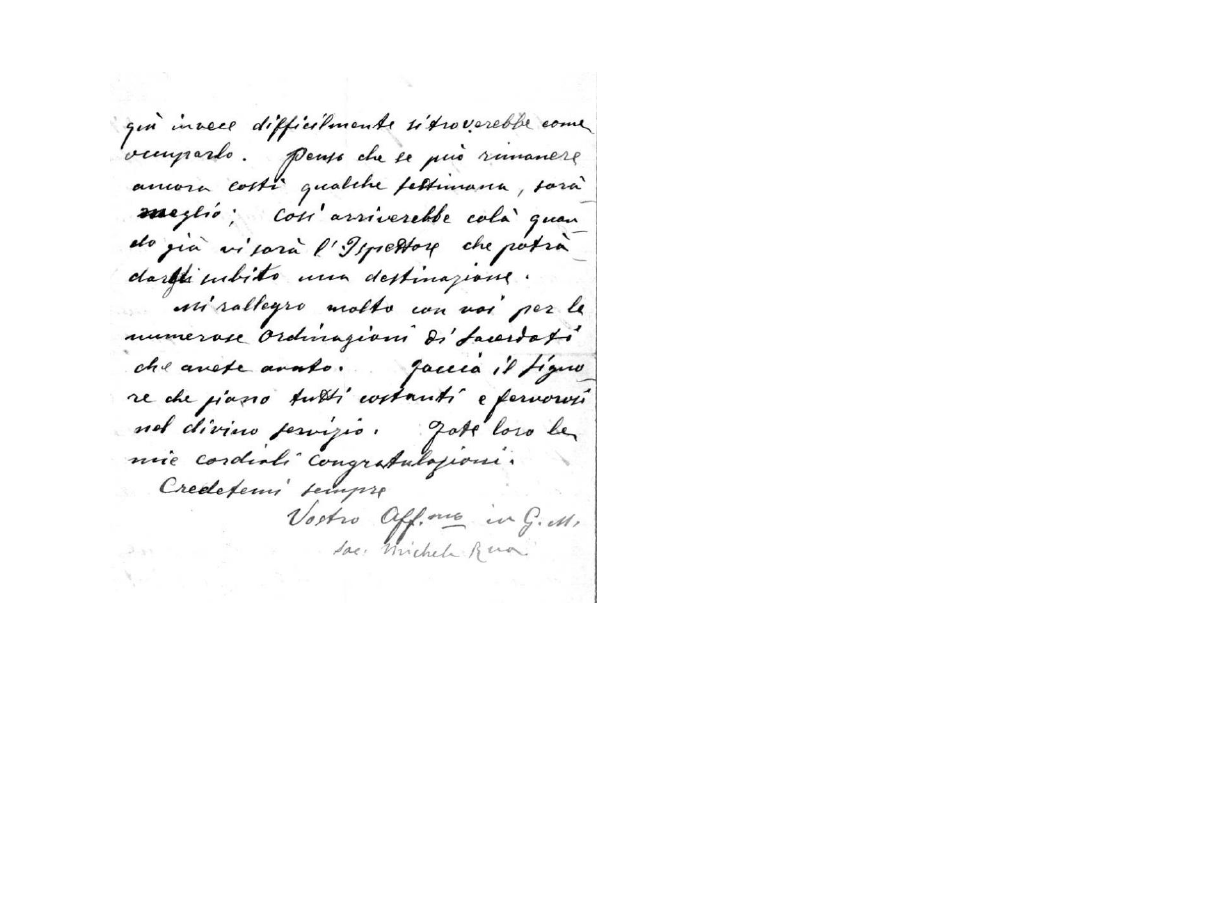 qui invece difficilmente si troverebbe come
occuparlo. Penso che se può rimanere
ancora costì qualche settimana, sarà
meglio; così arriverebbe colà quan-
do già vi sarà l'Ispettore che potrà
dargli subito una destinazione.
Mi rallegro molto con voi per le
numerose Ordinazioni di Sacerdoti
che avete avuto. Faccia il Signo-
re che siano tutti costanti e fervorosi
nel divino servizio. Fate loro le
mie cordiali congratulazioni.
Credetemi sempre
Vostro Aff.mo in G. M.
Sac. Michele Rua